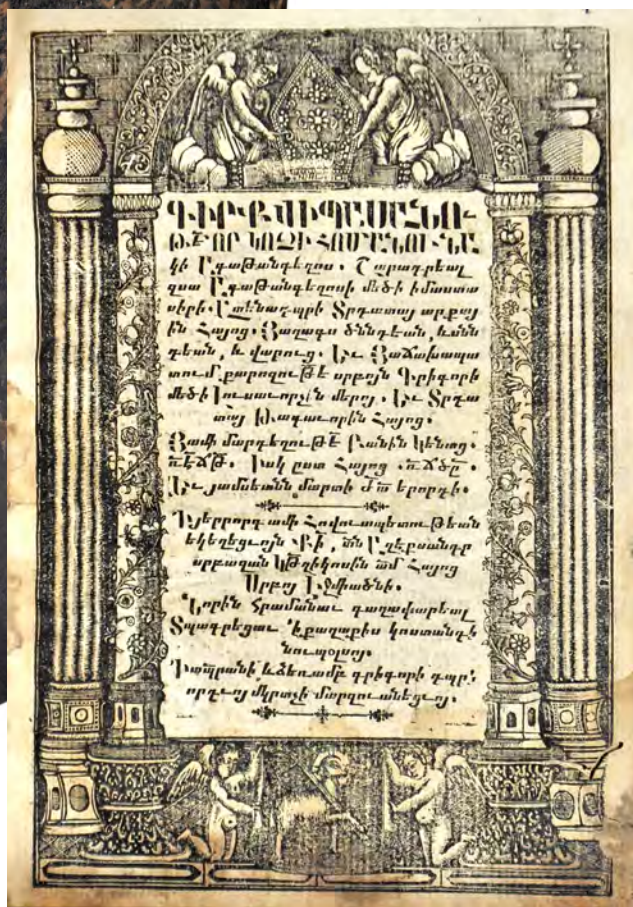 ԳԻՐՔ ՄԻՊԱՍԱՆՈՒ-
ԹԷ ՈՐ ԿՈՉԻ ՀԱՄԱՆՈՒՆԱ
կի Ագաթանգեղոս. Շարադրեալ
զսա Ագաթանգեղոսի մեծի իմաստա
սիրի. Ատենադպրի Տրդատայ արքայ
ին Հայոց. Յաղագս ծննդեան, և սնն
դեան, և վարուց. Եւ Յաճախապա
տում քարոզութէ սրբոյն Գրիգորի
մեծի Լուսաւորչին մերոյ. Եւ Տրդա
տայ Թագաւորին Հայոց.
Յամի մարդեղութէ Բանին Կենաց.
ռէճթ. Իսկ ըստ Հայոց. ռճծը.
Եւ յամսեանն մարտի ժա երորդի.
Դչերրորդ ամի Հովուապետութեան
եկեղեցւոյն Քի, տն Աղէքսանդր
սրբազան կթղիկոսին ամ Հայոց
Սրբոյ Էջմիածնի.
Նորին հրամանաւ գաղափարեալ
Տպագրեցաւ 'ի քաղաքիս կոստանդի
նուպօլսոյ.
Ի տպրանի և ձեռամբ գրիգորի դպրի
որդւոյ մկրտչի մարզուանեցւոյ.